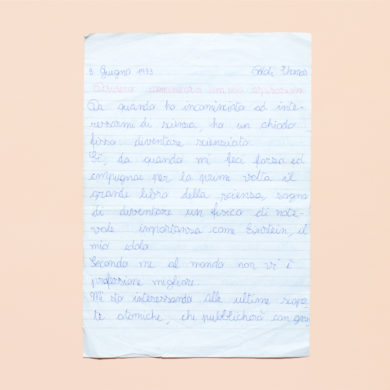 8 Giugno 1973
Desidero comunicare una mia aspirazione
Da quando ho incominciato ad inte-
ressarmi di scienza, ho un chiodo
fisso diventare scienziato.
Sì, da quando mi feci forza ed
impugnai per la prima volta il
grande libro della scienza, sogno
di diventare un fisico di note-
vole importanza come Einstein, il
mio idolo.
Secondo me al mondo non vi è
professione migliore.
Mi sto interessando alle ultime scoper-
te atomiche, che pubblicherò con